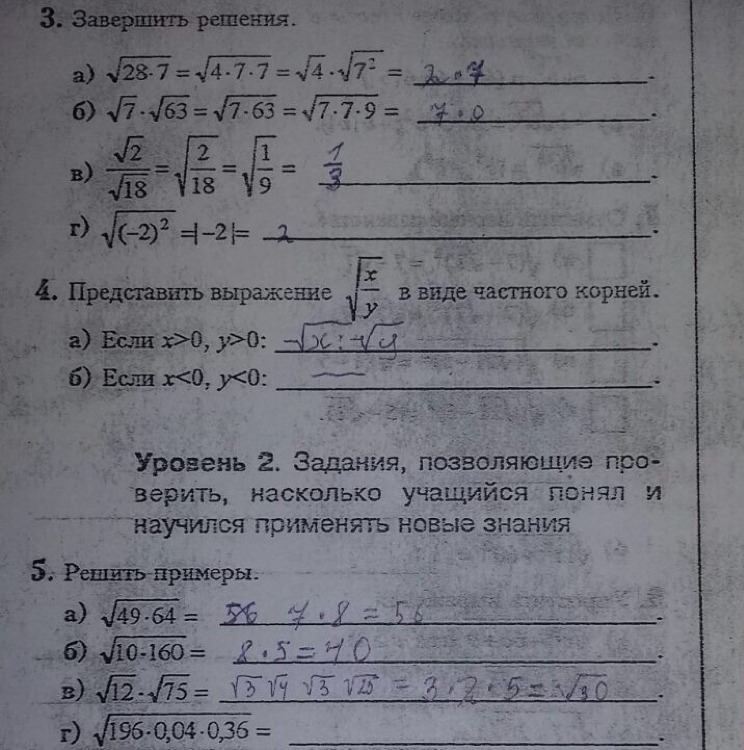 3. Завершить решения.
а) √28·7 = √4·7·7 = √4·√7² = 2·7.
б) √7·√63 = √7·63 = √7·7·9 = 7·0.
в) √2/√18 = √2/18 = √1/9 = 1/3.
г) √(−2)² =|−2|= 2.
4. Представить выражение √x/y в виде частного корней.
а) Если x>0, y>0: √x : √y.
б) Если x<0, y<0: —.
Уровень 2. Задания, позволяющие про-
верить, насколько учащийся понял и
научился применять новые знания
5. Решить примеры.
а) √49·64 = 56 7·8 = 56.
б) √10·160 = 8·5=40.
в) √12·√75 = √3 √4 √3 √25 = 3·2·5=√30.
г) √196·0,04·0,36 =